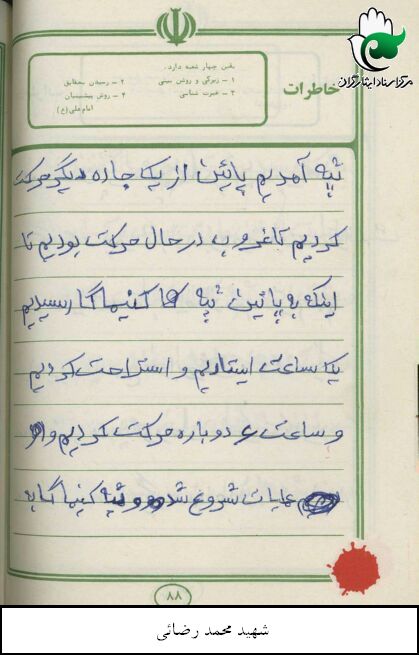 مرکز اسناد ایثارگران
خاطرات
یقین چهار شعبه دارد.
۱ – زیرکی و روشن بینی
۲ – رسیدن بحقایق
۳ – عبرت شناسی
۴ – روش پیشینیان
امام علی (ع)
تپه آمدیم پائین از یک جاده دیگر حرکت
کردیم تا غروب در حال حرکت بودیم تا
اینکه به پائین تپه کنیماگا رسیدیم
یک ساعت ایستادیم و استراحت کردیم
و ساعت ۶ دوباره حرکت کردیم و
عملیات شروع شد و تپه کنیماگا به
۸۸
شهید محمد رضائی